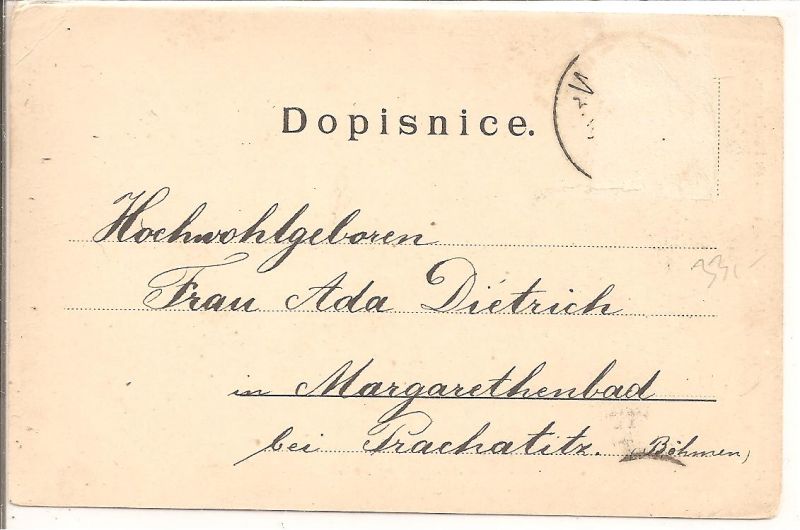 Dopisnice.
Hochwohlgeboren
Frau Ada Dietrich
in Margarethenbad
bei Prachatitz. (Böhmen)